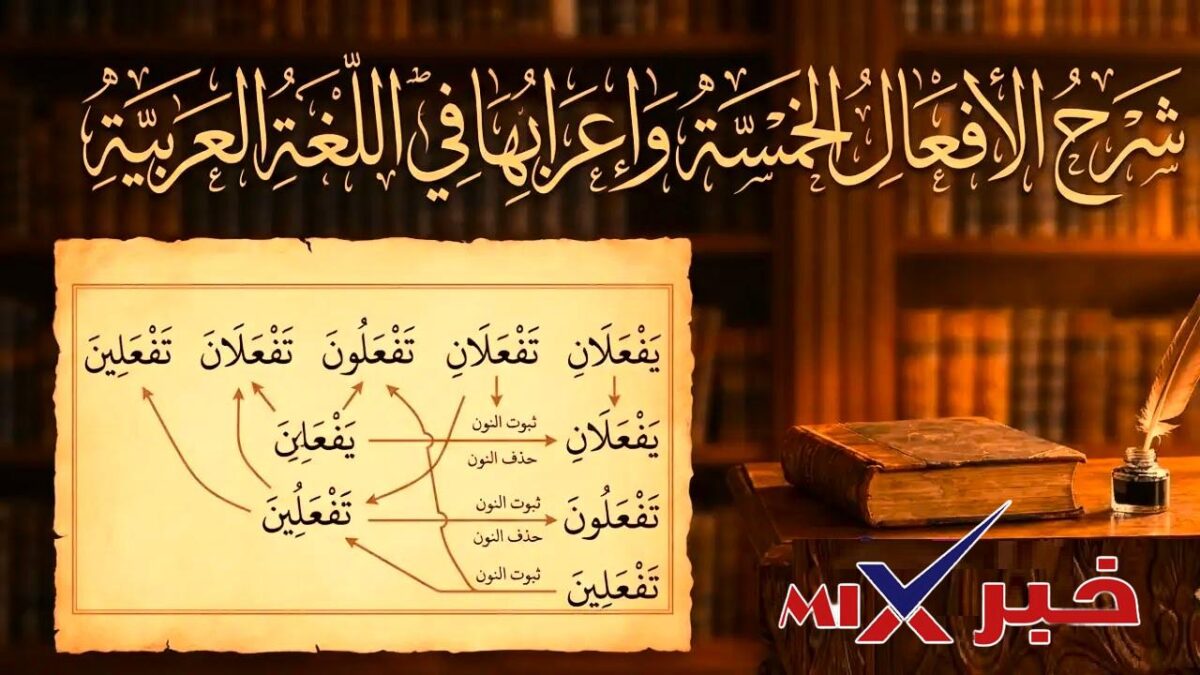 شَرْحُ الأَفْعَالِ الخَمْسَةُ وَإِعْرَابُهَا فِي اللُّغَةِ العَرَبِيَّةِ
يَفْعَلَانِ تَفْعَلَانِ تَفْعَلُونَ تَفْعَلَانَ تَفْعَلِينَ
يَفْعَلَانِ ثبوت النون
حذف النون
تَفْعَلُونَ ثبوت النون
حذف النون
تَفْعَلِينَ ثبوت النون
خبر MIX